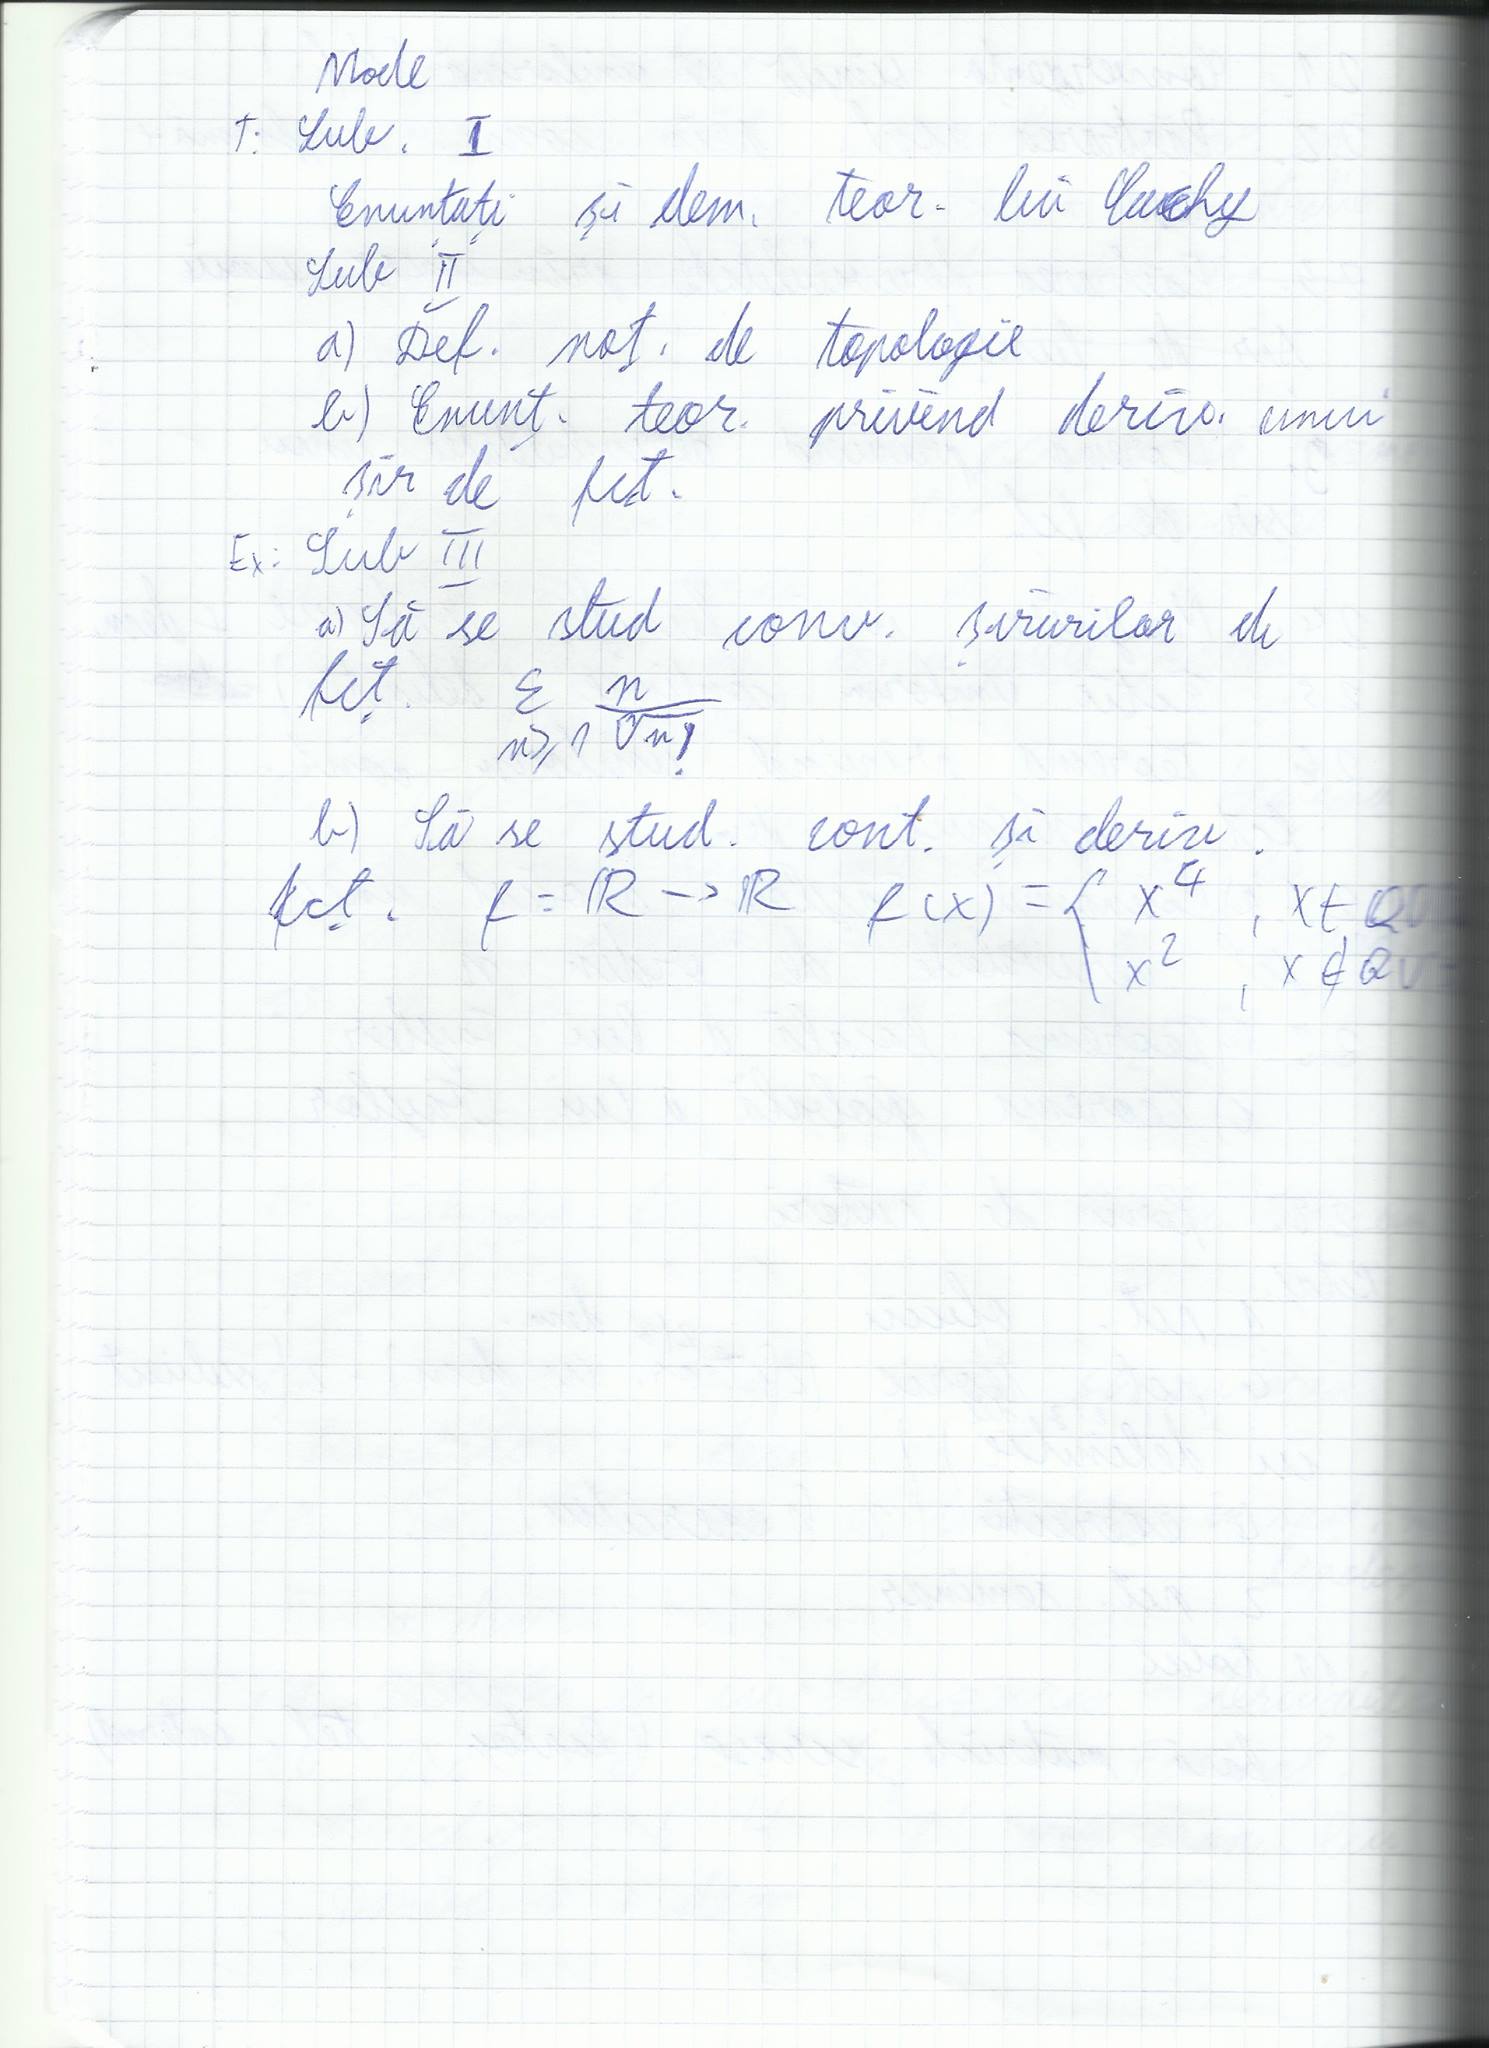 Mode
T: Sub. I
Enunțați și dem. teor. lui Cauchy
Sub II
a) Def. noț. de topologie
b) Enunț. teor. privind deriv. unui
șir de fct.
Ex: Sub III
a) Să se stud conv. șirurilor de
fct. Σ n≥1 n/√n!
b) Să se stud. cont. și deriv.
fct. f = ℝ → ℝ f(x) = { x⁴ , x ∈ Q
x² , x ∉ Q